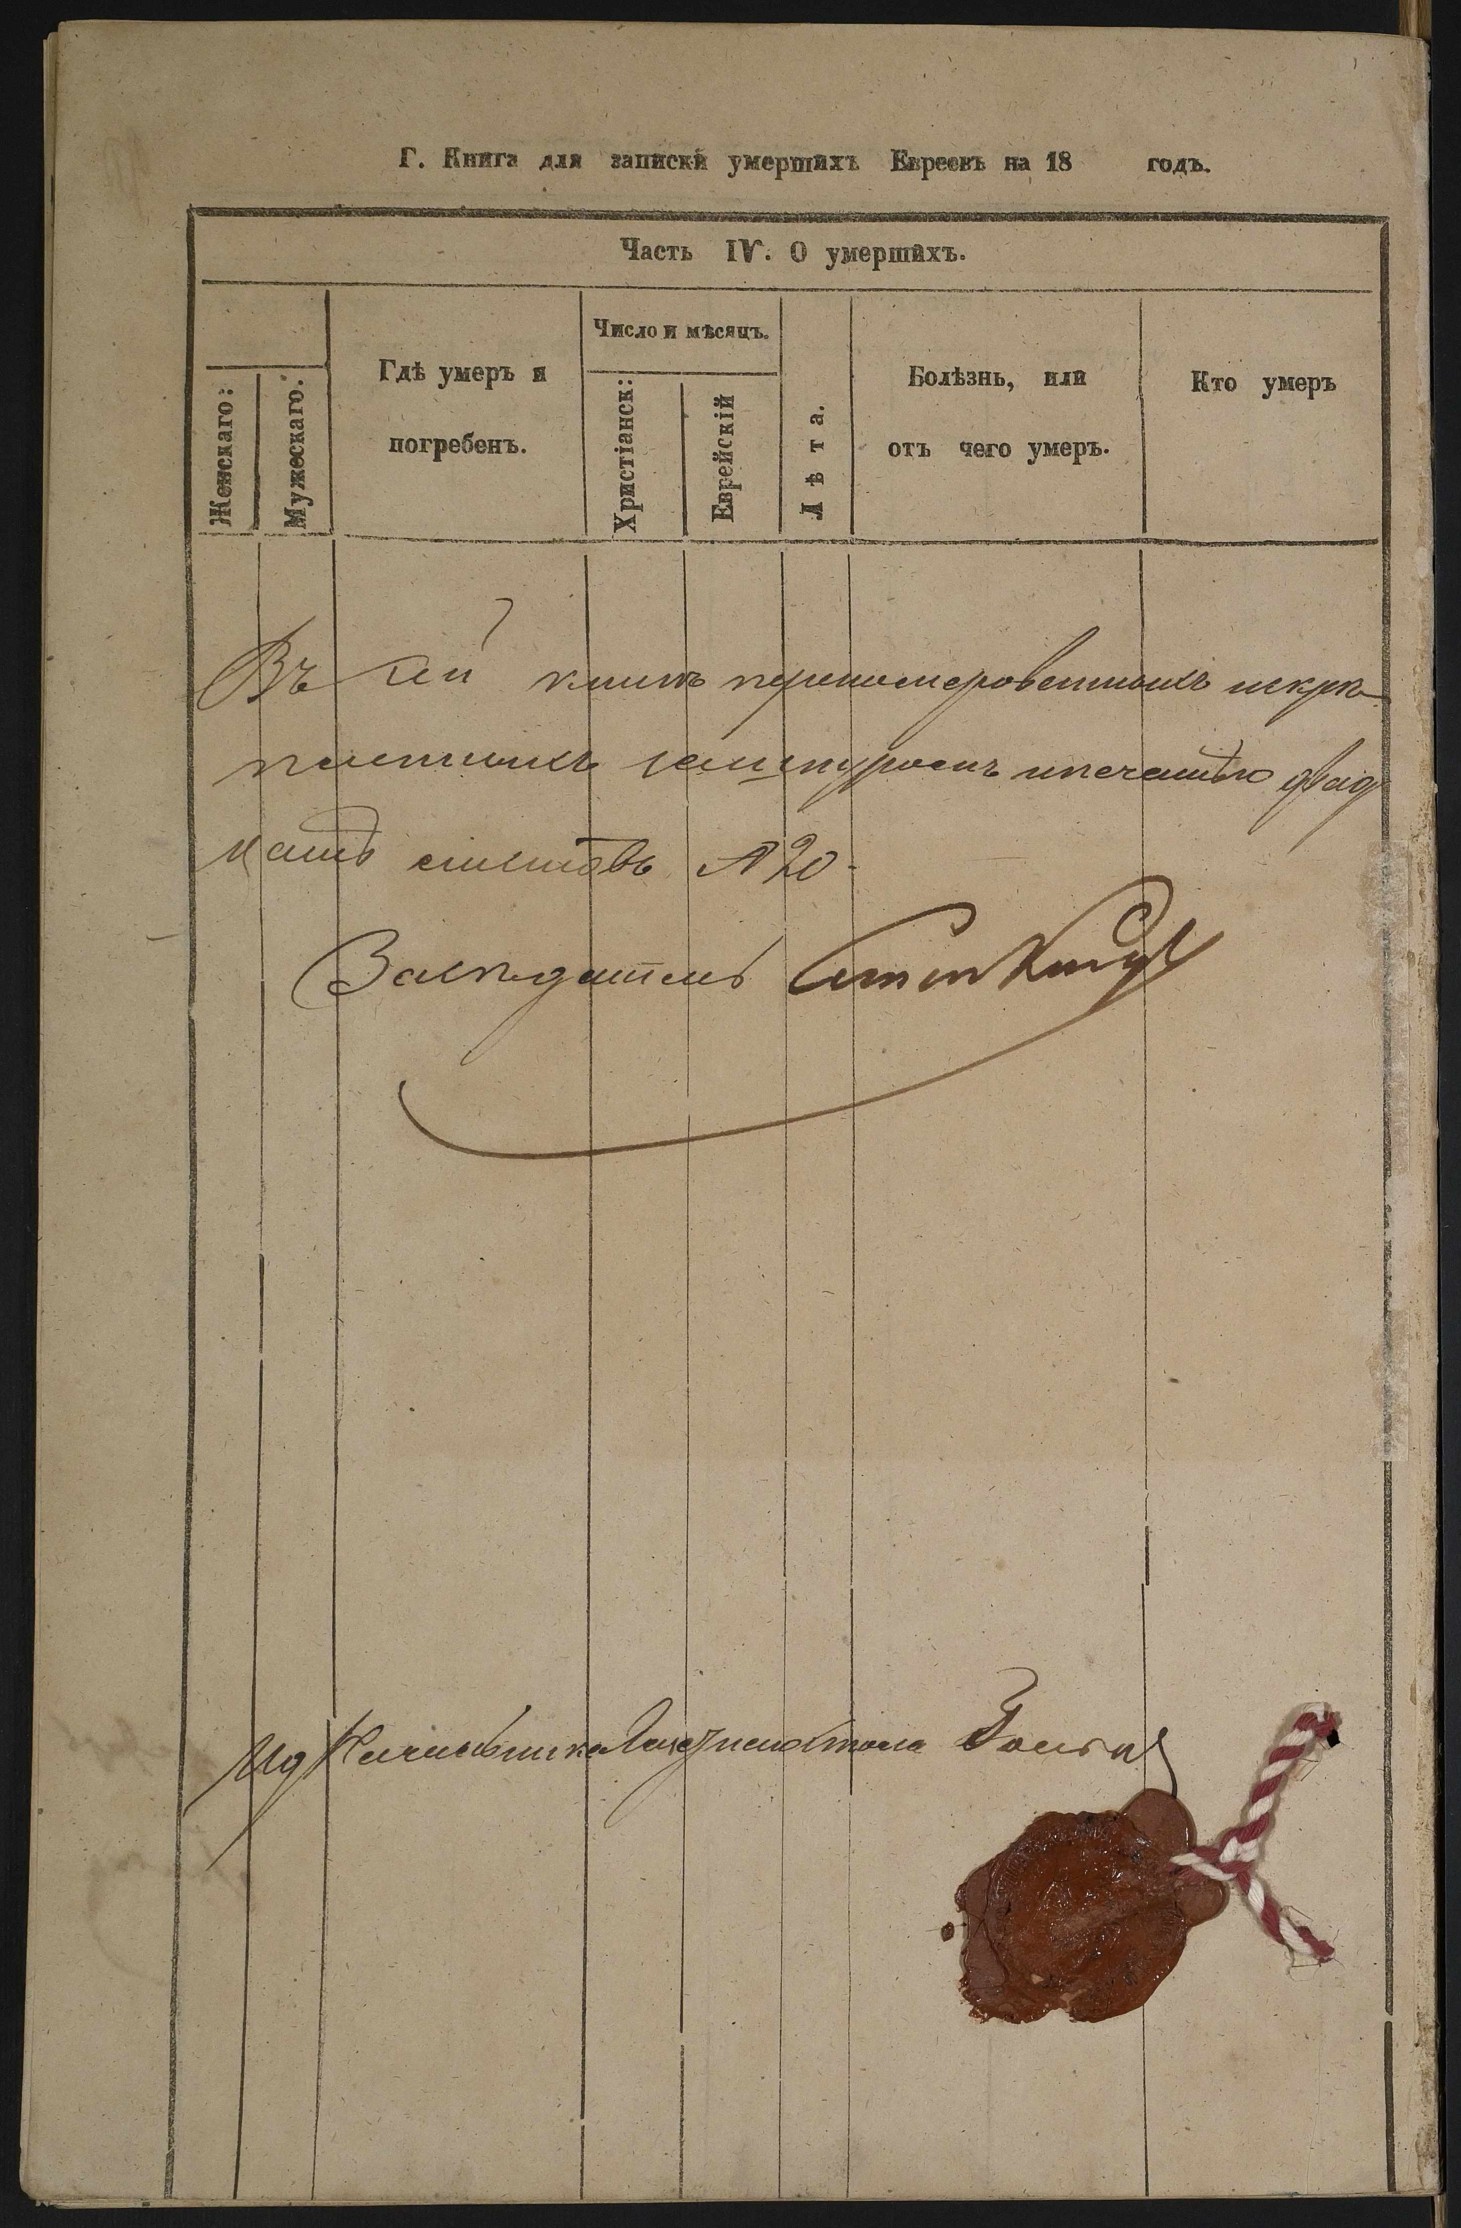 Г. Книга для записки умершихъ Евреевъ на 18 годъ.
Часть IV. О умершихъ.
Женскаго:
Мужескаго.
Гдѣ умеръ и
погребенъ.
Число и мѣсяцъ.
Христіанск:
Еврейскій
Лѣта.
Болѣзнь, или
отъ чего умеръ.
Кто умеръ
Въ сей книгѣ перенумерованныхъ искрѣ
пленныхъ шнуромъ ипечатью двад
цать листовъ № 20
Засѣдатель
Ид Начальника стола